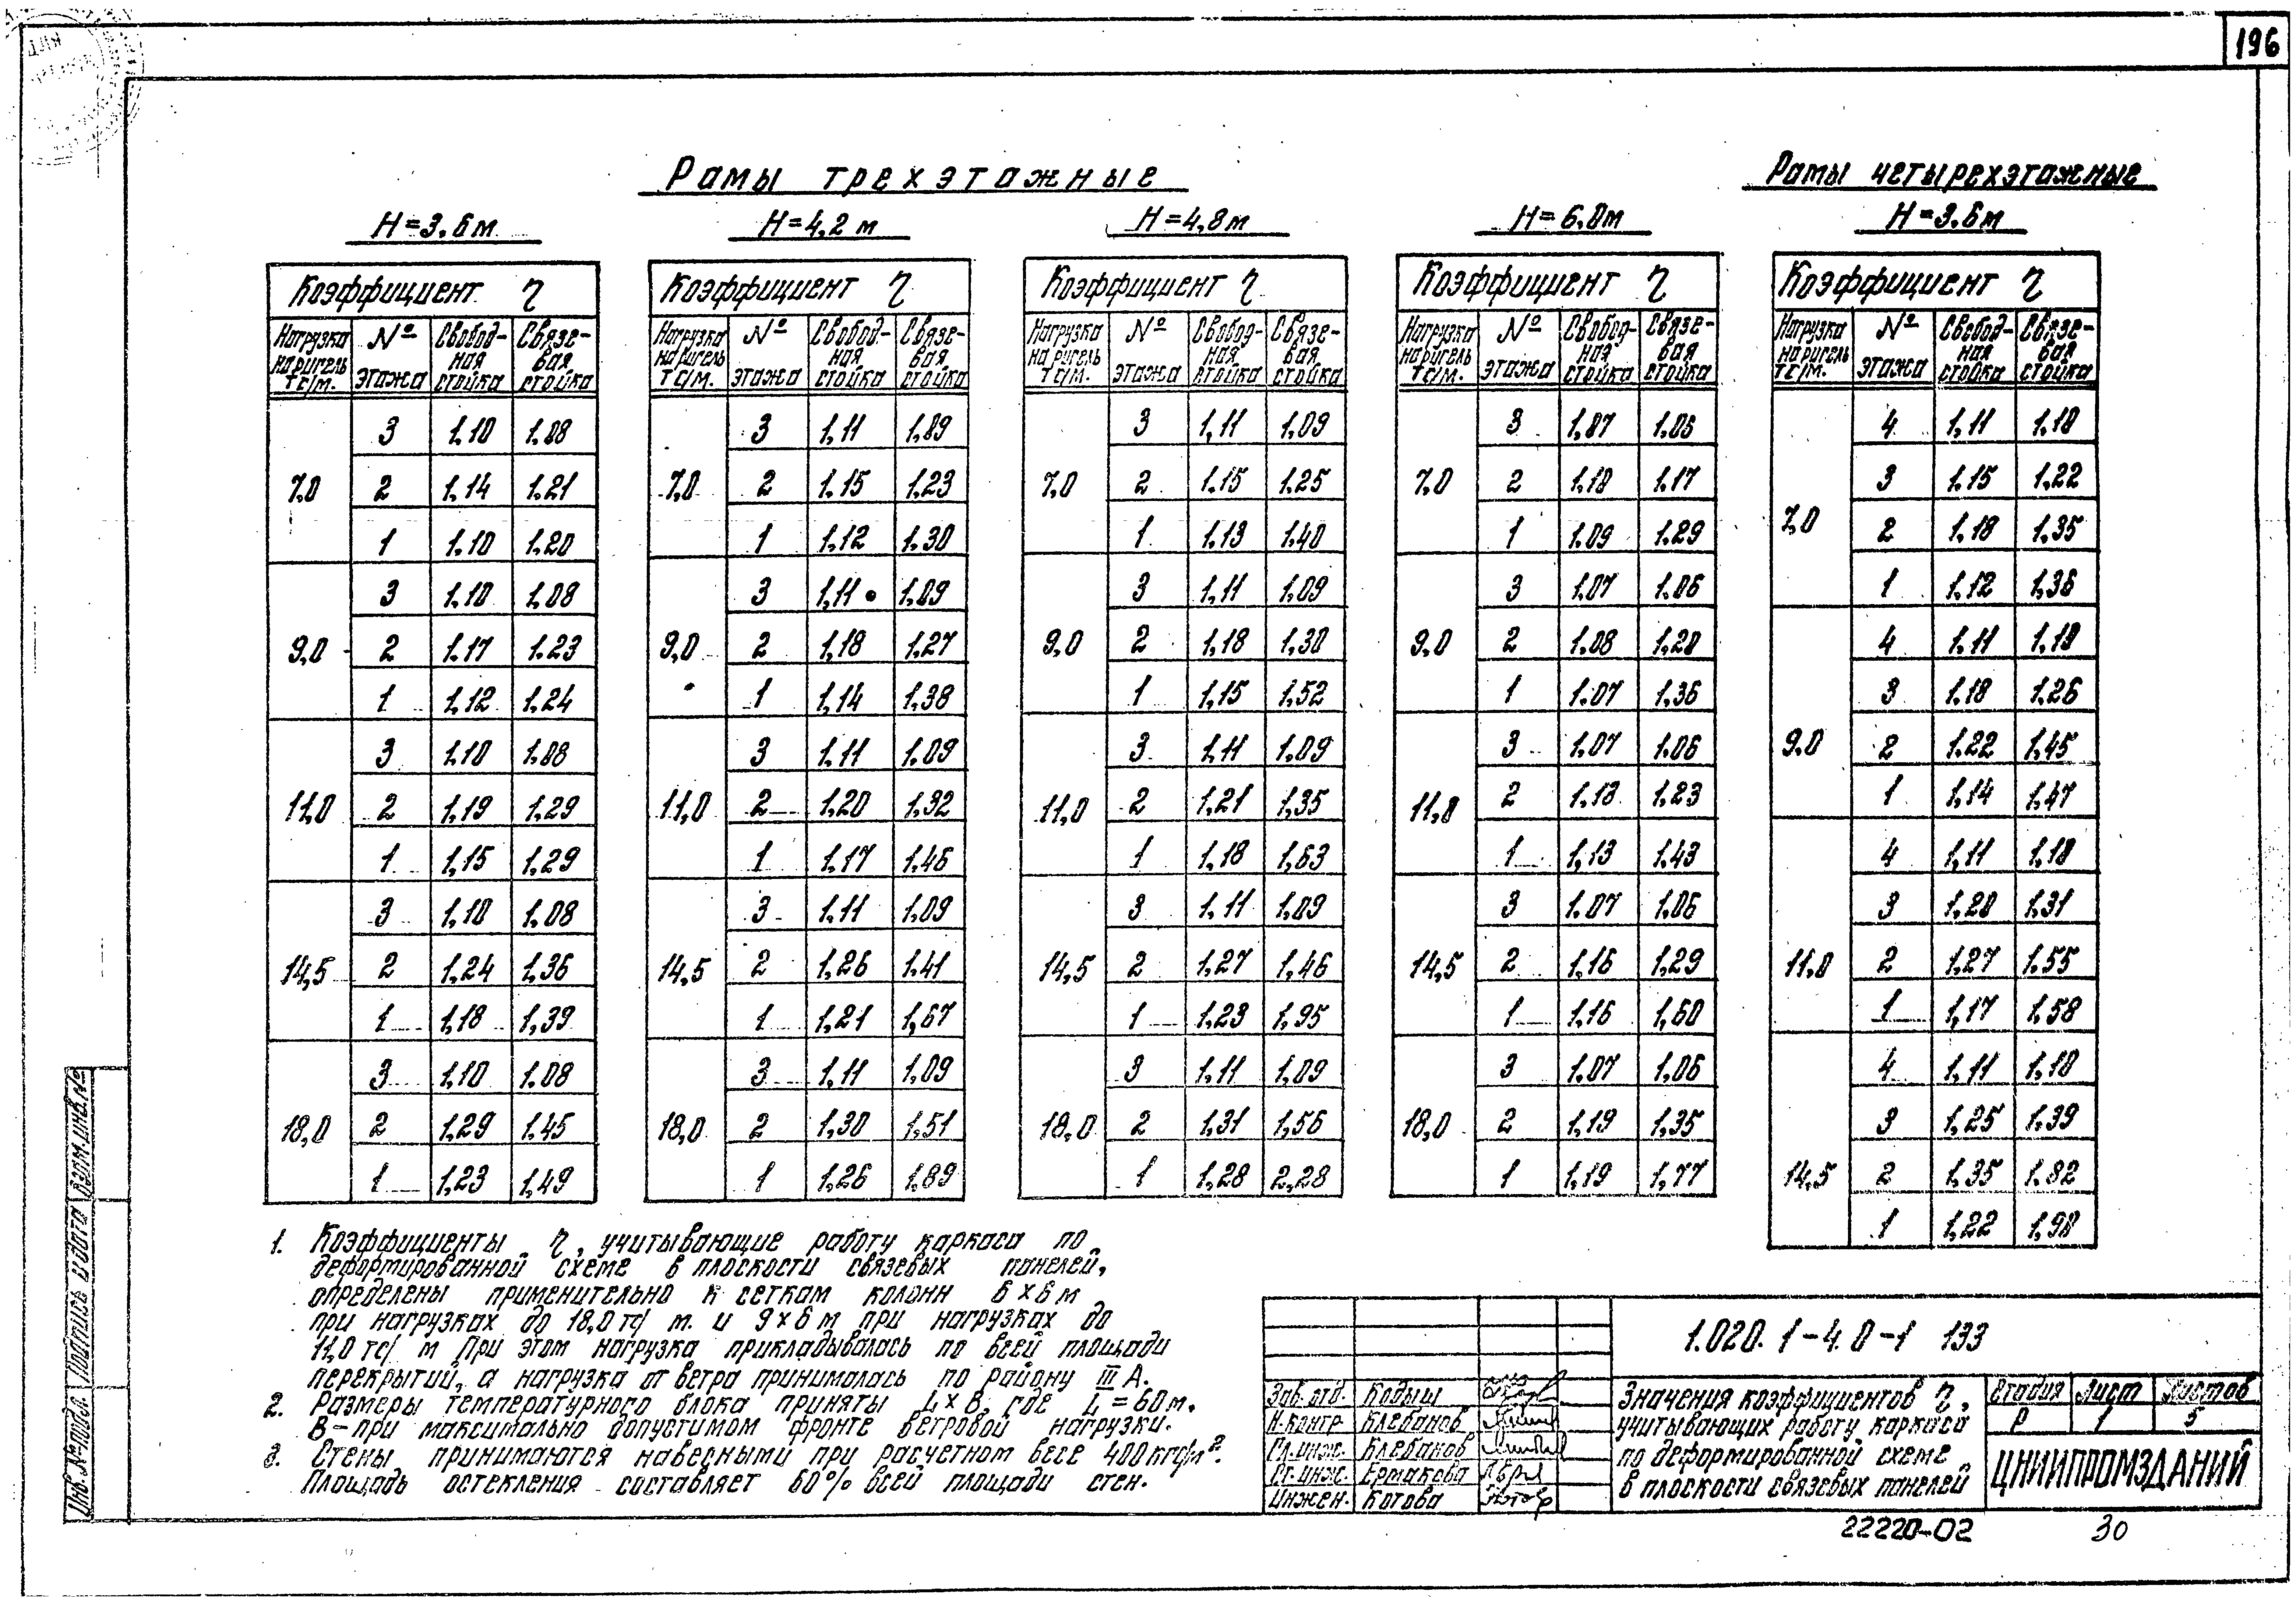 196
Рамы трехэтажные
Рамы четырехэтажные
H=3.6м
H=4,2 м
H=4,8м
H=6.0м
H=3.6м
Коэффициент η
Нагрузка на ригель тс/м. № этажа Свободная стойка Связевая стойка
7,0 3 1.10 1.08
2 1.14 1.21
1 1.10 1.20
9,0 3 1.10 1.08
2 1.17 1.23
1 1.12 1.24
11,0 3 1.10 1.08
2 1.19 1.29
1 1,15 1.29
14,5 3 1,10 1.08
2 1,24 1,36
1 1,18 1,39
18,0 3 1,10 1.08
2 1.29 1.45
1 1,23 1,49
Коэффициент η
Нагрузка на ригель тс/м. № этажа Свобод.-ная стойка Связе-вая стойка
7,0 3 1,11 1.09
2 1.15 1.23
1 1.12 1.30
9,0 3 1,11 1.09
2 1,18 1.27
1 1,14 1.38
11,0 3 1.11 1.09
2 1.20 1.32
1 1.17 1.46
14,5 3 1.11 1.09
2 1,26 1.41
1 1,21 1,67
18,0 3 1,11 1.09
2 1,30 1,51
1 1,26 1,89
Коэффициент η
Нагрузка на ригель тс/м. № этажа Свобод-ная стойка Связе-вая стойка
7,0 3 1,11 1.09
2 1.15 1.25
1 1.13 1.40
9,0 3 1,11 1.09
2 1,18 1,30
1 1,15 1,52
11,0 3 1,11 1.09
2 1,21 1,35
1 1,18 1,63
14,5 3 1.11 1,09
2 1,27 1,46
1 1.23 1,95
18,0 3 1.11 1,09
2 1,31 1,56
1 1,28 2,28
Коэффициент η
Нагрузка на ригель тс/м. № этажа Свобод-ная стойка Связе-вая стойка
7,0 3 1,07 1.06
2 1,10 1.17
1 1.09 1.29
9,0 3 1.07 1.06
2 1.08 1.20
1 1.07 1.36
11,0 3 1.07 1.06
2 1,13 1.23
1 1,13 1.43
14,5 3 1.07 1,06
2 1,16 1.29
1 1,16 1,60
18,0 3 1.07 1,06
2 1,19 1,35
1 1,19 1,77
Коэффициент η
Нагрузка на ригель тс/м. № этажа Свобод-ная стойка Связе-вая стойка
7,0 4 1,11 1.10
3 1.15 1,22
2 1,18 1,35
1 1,12 1,36
9.0 4 1.11 1,10
3 1,18 1.26
2 1.22 1,45
1 1,14 1,47
11,0 4 1,11 1,10
3 1,20 1,31
2 1,27 1.55
1 1,17 1.58
14,5 4 1.11 1,10
3 1,25 1,39
2 1,35 1.82
1 1,22 1,98
1. Коэффициенты η, учитывающие работу каркаса по
деформированной схеме в плоскости связевых панелей,
определены применительно к сеткам колонн 6×6 м
при нагрузках до 18,0 тс/м. и 9×6 м при нагрузках до
11,0 тс/м При этом нагрузка прикладывалась по всей площади
перекрытий, а нагрузка от ветра принималась по району III А.
2. Размеры температурного блока приняты L×B, где L=60м.
B-при максимально допустимом фронте ветровой нагрузки.
3. Стены принимаются навесными при расчетном весе 400кгс/м².
Площадь остекления составляет 60% всей площади стен.
Взам.инв.№
Подпись и дата
Инв.№подл.
1.020.1-4.0-1 133
Зав.отд. Кодыш
Н.контр. Клебанов
Гл.инж. Клебанов
Ст.инж. Ермакова
Инжен. Котова
Значения коэффициентов η,
учитывающих работу каркаса
по деформированной схеме
в плоскости связевых панелей
Стадия Лист Листов
Р 1 5
ЦНИИПРОМЗДАНИЙ
22220-02 30